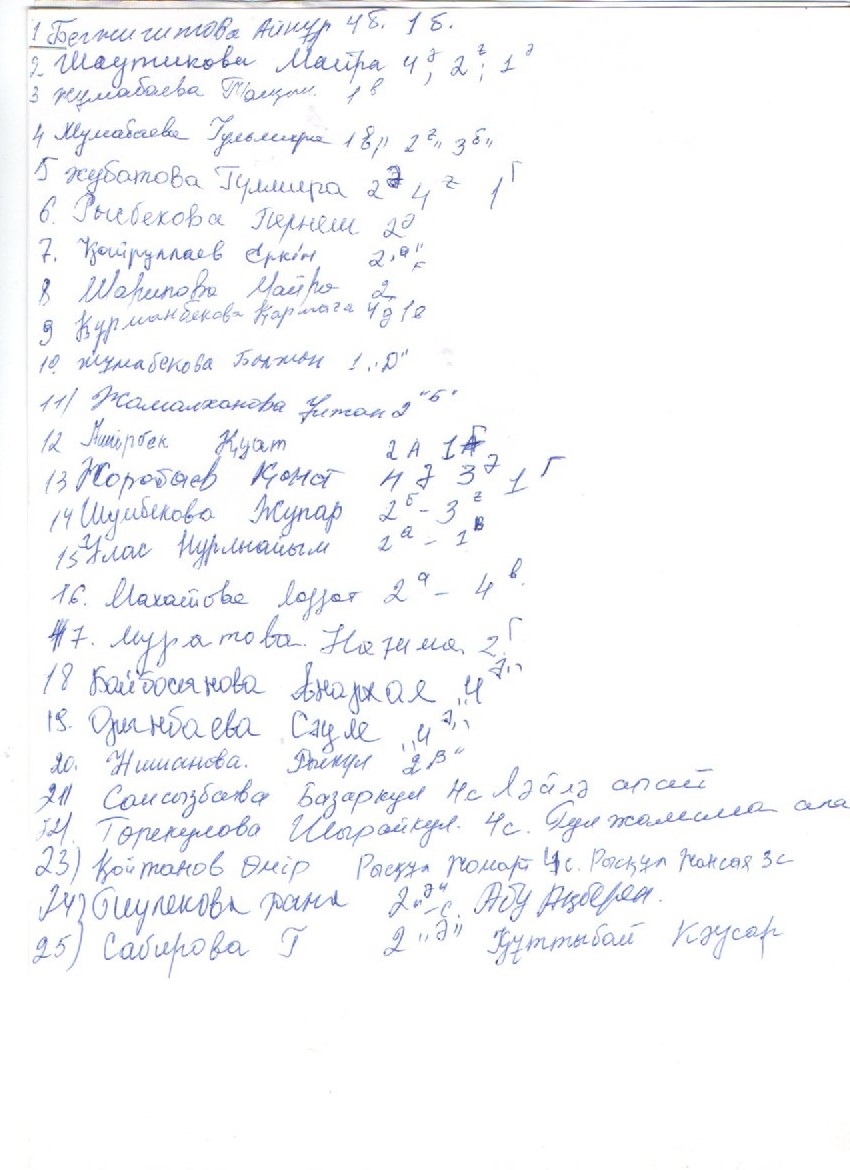 1 Бегжигитова Айнур 4б. 1б.
2. Шаутикова Майра 4д, 2г; 1д
3 Жумабаева 1в
4 Жумабаева Гульмира 1 2г" 3б"
5 Жубатова Гулмира 2 4г 1г
6. Рысбекова Пернеш 2д
7. Қайруллаев Еркін 2 "а"
8 Шарипова Майра 2
9 Құрманбекова 4д 1в
10. Жумабекова 1 "D"
11) Жамалханова Ұлтан 2 "Б"
12 Қуат 2А 1
13 Жорабаев Қанат 4 д 3д 1г
14 Шүлбекова Жупар 2б – 3г
15 Ұлас Нұрлыайым 2а – 1в
16. Махатова Ләззат 2а – 4в.
17. Муратова. Назима. 2г
18 Байбосынова Анархае "4 д"
19. Орынбаева Сәуле "4 д"
20. Нишанова. Рыскул 2В"
21 Самсызбаева Базаркул 4с Ләйлә апай
Торекулова Шырайкул. 4с. Гулжамила апа
23) Қойтанов Өмір Расқұл Жомарт 4с. Расқұл Жансая 3с
24) Жана 2"Д" с. Абу Ақберен.
25) Сабирова Г 2 "Д" Құттыбай Кәусар